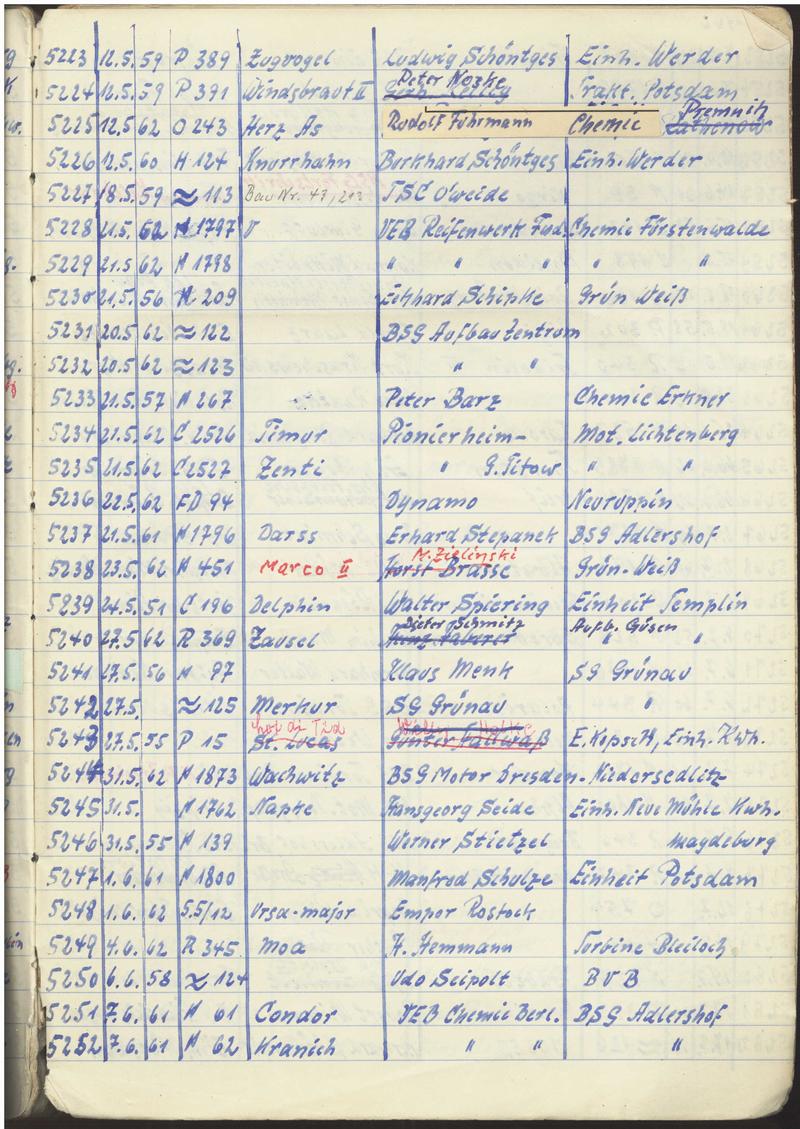 5223 12.5. 59 P 389 Zugvogel Ludwig Schöntges Einh. Werder
Peter Nozke
5224 12.5. 59 P 391 Windsbraut II Trakt. Potsdam
Premnitz
5225 12.5 62 O 243 Herz As Rudolf Fuhrmann Chemie Rathenow
5226 12.5. 60 H 124 Knurrhahn Burkhard Schöntges Einh. Werder
5227 18.5. 59 ≈ 113 Bau Nr. 43, 213 TSC O'weide
5228 21.5. 62 H 1797 V VEB Reifenwerk Fwd. Chemie Fürstenwalde
5229 21.5 62 H 1798 " " " " "
5230 21.5. 56 H 209 Eckhard Schipke Grün Weiß
5231 20.5 62 ≈ 122 BSG Aufbau Zentrum
5232 20.5 62 ≈ 123 " "
5233 21.5. 57 H 267 Peter Barz Chemie Erkner
5234 21.5. 62 C 2526 Timur Pionierheim- Mot. Lichtenberg
5235 21.5 62 C 2527 Zenti " G. Titow " "
5236 22.5. 62 FD 94 Dynamo Neuruppin
5237 21.5. 61 H 1796 Darss Erhard Stepanek BSG Adlershof
M. Zielinski
5238 23.5. 62 H 451 Marco II Horst Brasse Grün-Weiß
5239 24.5. 51 C 196 Delphin Walter Spiering Einheit Templin
Dieter Schmitz Aufb. Güsen
5240 27.5 62 R 369 Zausel " "
5241 27.5. 56 H 97 Klaus Menk SG Grünau
5242 27.5. ≈ 125 Merkur SG Grünau "
5243 27.5. 55 P 15 St. Lucas Günter Fallwaß E. Kopsch, Einh. Kwh.
5244 31.5. 62 H 1873 Wachwitz BSG Motor Dresden-Niedersedlitz
5245 31.5. H 1762 Napke Hansgeorg Seide Einh. Neue Mühle Kwh.
5246 31.5. 55 H 139 Werner Stietzel Magdeburg
5247 1.6. 61 H 1800 Manfred Schulze Einheit Potsdam
5248 1.6. 62 5.5/12 Ursa-major Empor Rostock
5249 4.6. 62 R 345 Moa H. Hemmann Turbine Bleiloch
5250 6.6. 58 ≈ 124 Udo Seipolt BVB
5251 7.6. 61 H 61 Condor VEB Chemie Berl. BSG Adlershof
5252 7.6. 61 H 62 Kranich " " "